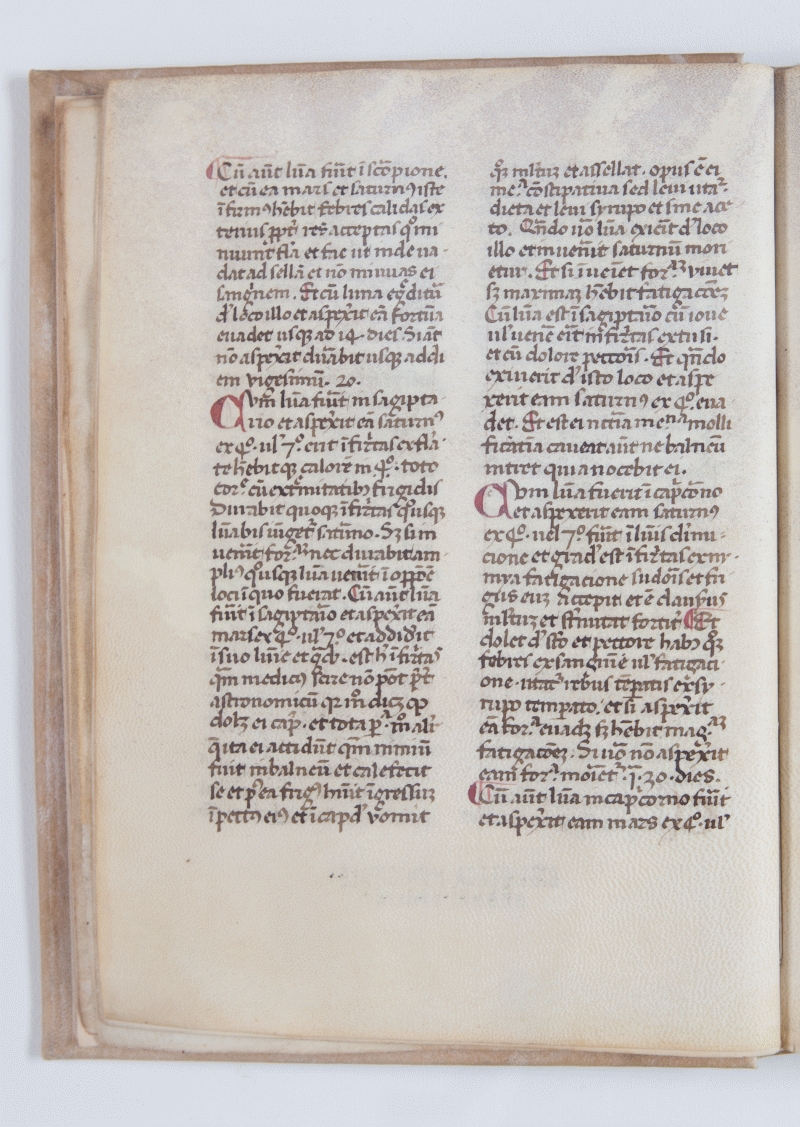 Cū aūt lūa fūit ī scōpione.
et cū ea mars et saturnꝯ iste
īfirmꝯ hēbit febres calidas ex
tenus ꝓpt̄ res acceptas qͦ mi
nuunt fla et fac ut inde ua
dat ad sellā et nō minuas ei
sangnem. Et cū luna eḡditū
d' loco illo et aspexit eā fortūa
euadet usqꝫ ad 14 dies Si aūt
nō aspexit durabit usqꝫ ad di
em vigesimū. 20.
Cvm lūa fūit in sagipta
rio et aspexit eā saturnꝯ
ex 4º. ul' 7º. erit īfirtas ex fla
te hēbit qꝫ calorē in 4º. toto
corꝰ. cū extmitatibꝫ frigidis
Durabit quoqꝫ īfirtas qousqꝫ
lūa
uenit for. nec durabit am
pliꝯ qousqꝫ lūa uenit ī oppōe
loci ī quo fuerat. Cū aūt lūa
fūit ī sagiptaīo et aspexit eā
mars ex 4º. ul' 7º et addidit
ī suo lūie et est h' īfirtas
qm medicꝯ scire nō pōt pt
astronomicū qr m dicꝫ qp
dolꝫ ei cap̄. et tota ꝑ. m ali
qita ei accidūt qm nimiū
fuit in balneū et calefecit
se et ꝑ ea frigꝯ hūit īgressuꝫ
ī pectꝯ eiꝯ et ī capd' vomit
qꝫ mltuꝫ et assellat. opus ē ei
me. cōstipatiua sed leui utat
dieta et leui syrupo et sine ace
to. Qndo uo lūa exient d' loco
illo et inuenit saturnū mori
etur. Et si īueīet for. viuet
sꝫ maximaꝫ hēbit fatigacōeꝫ
Cū lūa est ī sagiptaīo cū ioue
ul' uenē eit m firtas ex tusi.
et cū dolore pectoīs. Et qndo
exiuerit d' isto loco et aspe
xerit eam saturnꝯ ex 4º. eua
det. Et est ei nctīa mena molli
ficatīa caueat aūt ne balneū
intret quia nocebit ei.
Cvm lūa fuerit ī capcōno
et aspexerit eam saturnꝯ
ex 4º. uel 7º fūit ī lūis dīmu
cione et grad' est īfirtas ex ni
mia fatigacione sudoīs et fri
gus euꝫ accepit et ē clausus
mltuꝫ et stnutat fortit Et
dolet d' sto et pectore habꝫ qꝫ
febres ex sanguīe ul' fatigaci
one utat rebus tēpatis et sy
rupo tempato. et si aspexit
eā for. euadꝫ sꝫ hēbit mag.
fatigacōeꝫ. Si uo nō aspexit
eam for. moīet. ī. 30. dies.
Cū aūt lūa in capcorno fūit
et aspexit eam mars ex 4º. ul'